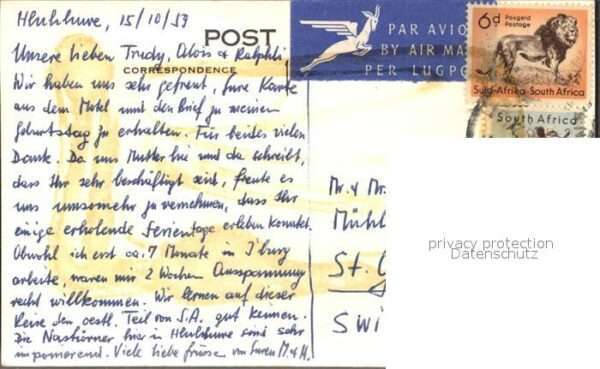 Hluhluwe, 15/10/59
POST
CORRESPONDENCE
PAR AVIO
BY AIR MA
PER LUGPO
6d Posgeld
Postage
Suid-Afrika-South Africa
South Africa
Unsere lieben Trudy, Alois & Ralphli
Wir haben uns sehr gefreut, Eure Karte
aus dem Motel und den Brief zu meinem
Geburtstag zu erhalten. Für beides vielen
Dank. Da uns Mutter hie und da schreibt,
dass Ihr sehr beschäftigt seid, freute es
uns umsomehr zu vernehmen, dass Ihr
einige erholende Ferientage erleben konntet.
Obwohl ich erst ca. 7 Monate in J'burg
arbeite, waren mir 2 Wochen Ausspannung
recht willkommen. Wir lernen auf dieser
Reise den oestl. Teil von S.A. gut kennen.
Die Nashörner hier in Hluhluwe sind sehr
imponierend. Viele liebe Grüsse von Euren M. & H.
Mr. & Mr
Mühl
St. G
Swi
privacy protection
Datenschutz